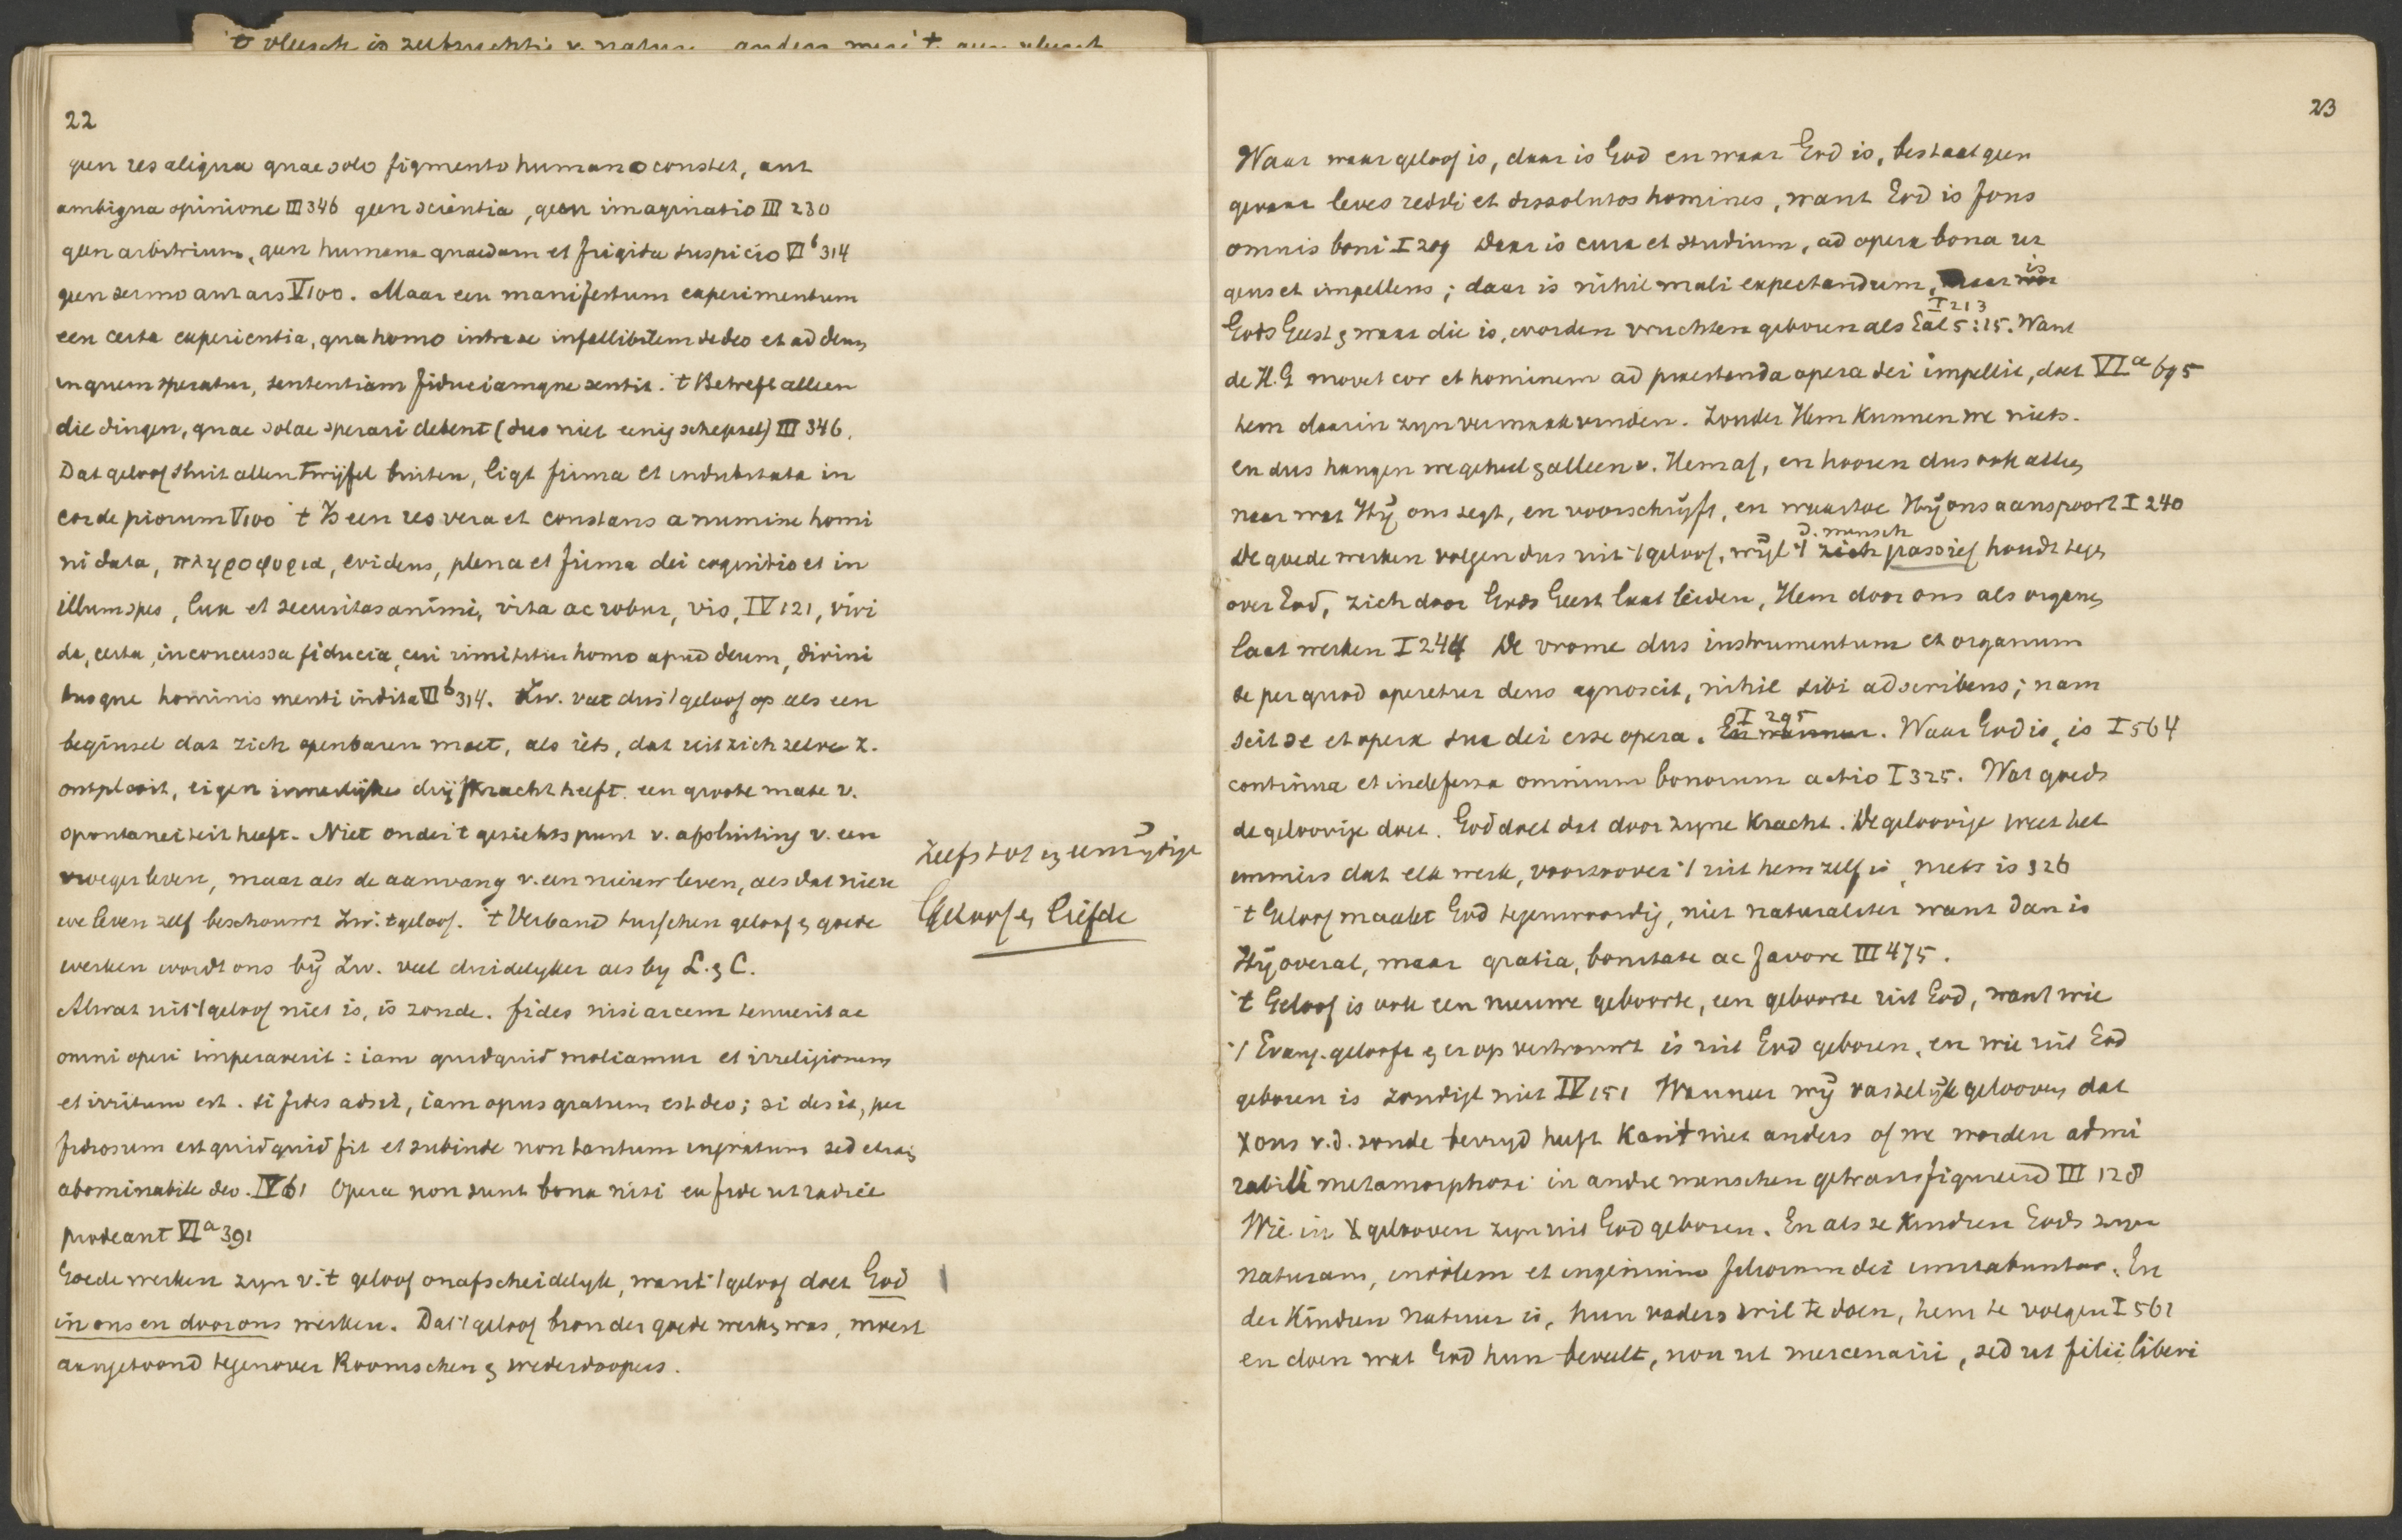 't vleesch is zelfzuchtig v. natuur anders
22
geen res aliqua quae solo figmento humano constet, aut
ambigua opinione III 346 geen scientia, geen imaginatio III 230
geen arbitrium, geen humana quaedam et frigida suspicio VI b 314
geen sermo aut ars V 100. Maar een manifestum experimentum
een certa experientia, qua homo intra se infallibilem de deo et ad deum
in quem speratur, sententiam fiduciamque sentit. 't Betreft alleen
die dingen, quae solae sperari debent (dus niet eenig schepsel) III 346.
Dat geloof sluit allen twijfel buiten, ligt firma et indubitata in
corde piorum V 100 't Is een res vera et constans a numine homi
ni data, πληροφορια, evidens, plena et firma dei cognitio et in
illum spes, lux et securitas animi, vita ac robur, vis, IV 121, vivi
da, certa, inconcussa fiducia, qui homo apud deum, divini
tusque hominis menti indita VI b 314. Zw. vat dus 't geloof op als een
beginsel dat zich openbaren moet, als iets, dat uit zich zelve z.
ontplooit, eigen innerlijke drijfkracht heeft. een groote mate v.
spontaneiteit heeft. Niet onder 't gezichtspunt v. afsluiting v. een
vroeger leven, maar als de aanvang v. een nieuw leven, als dat nieu
we leven zelf beschouwt Zw. 't geloof. 't Verband tusschen geloof & goede
werken wordt ons bij Zw. veel duidelyker als by L. & C.
Alwat uit 't geloof niet is, is zonde. fides nisi arcem tenuerit ac
omni operi imperaverit: iam quidquid moliamur et irreligiosum
et irritum est. si fides adsit, iam opus gratum est deo; si desit, per
fidiosum est quidquid fit et subinde non tantum ingratum sed etiam
abominabile deo. IV 61 Opera non sunt bona nisi ex fide ut radice
prodeant VI a 391
Goede werken zyn v. 't geloof onafscheidelyk, want 't geloof doet God
in ons en door ons werken. Dat 't geloof bron der goede werken was, moest
aangetoond tegenover Roomschen & wederdoopers.
Zelfs tot eenzijdige
Geloof en liefde
23
Waar waar geloof is, daar is God en waar God is, bestaat geen
gevaar leves reddi et dissolutos homines, want God is fons
omnis boni I 209 Daar is cura et studium, ad opera bona ur
gens et impellens; daar is nihil mali expectandum, is
I 213
Gods Geest & waar die is, worden vruchten geboren als Gal 5:15. Want
de H. G movet cor et hominem ad praestanda opera dei impellit, doet VI a 695
hem daarin zyn vermaak vinden. Zonder Hem kunnen we niets.
en dus hangen we geheel & alleen v. Hem af, en hooren dus ook alleen
naar wat Hij ons zegt, en voorschrijft, en waartoe Hij ons aanspoort I 240
d. mensch
De goede werken volgen dus uit 't geloof, wijl zich passief houdt tegen
over God, zich door Gods Geest laat leiden, Hem door ons als organen
laat werken I 244 De vrome dus instrumentum et organum
se per quod operetur deus agnoscit, nihil sibi adscribens; nam
I 295
scit se et opera sua dei esse opera. En wanneer. Waar God is, is I 564
continua et indefessa omnium bonorum actio I 325. Wat goeds
de geloovige doet. God doet dat door zyne kracht. De geloovige weet het
immers dat elk werk, voorzoover 't uit hem zelf is, niets is 326
't Geloof maakt God tegenwoordig, niet naturaliter want dan is
Hij overal, maar gratia, bonitate ac favore III 475.
't Geloof is ook een nieuwe geboorte, een geboorte uit God, want wie
't Evang. gelooft & er op vertrouwt is uit God geboren, en wie uit God
geboren is zondigt niet IV 151 Wanneer wij vastelijk gelooven dat
X ons v. d. zonde bevryd heeft kan 't niet anders of we worden admi
rabili metamorphosi in andre menschen getransfigureerd III 128
Wie in X gelooven zyn uit God geboren. En als ze kindren Gods zyn
naturam, indolem et ingenium filiorum dei imitabuntur. En
der kindren natuur is, hun vaders wil te doen, hem te volgen I 561
en doen wat God hun beveelt, non ut mercenarii, sed ut filii liberi